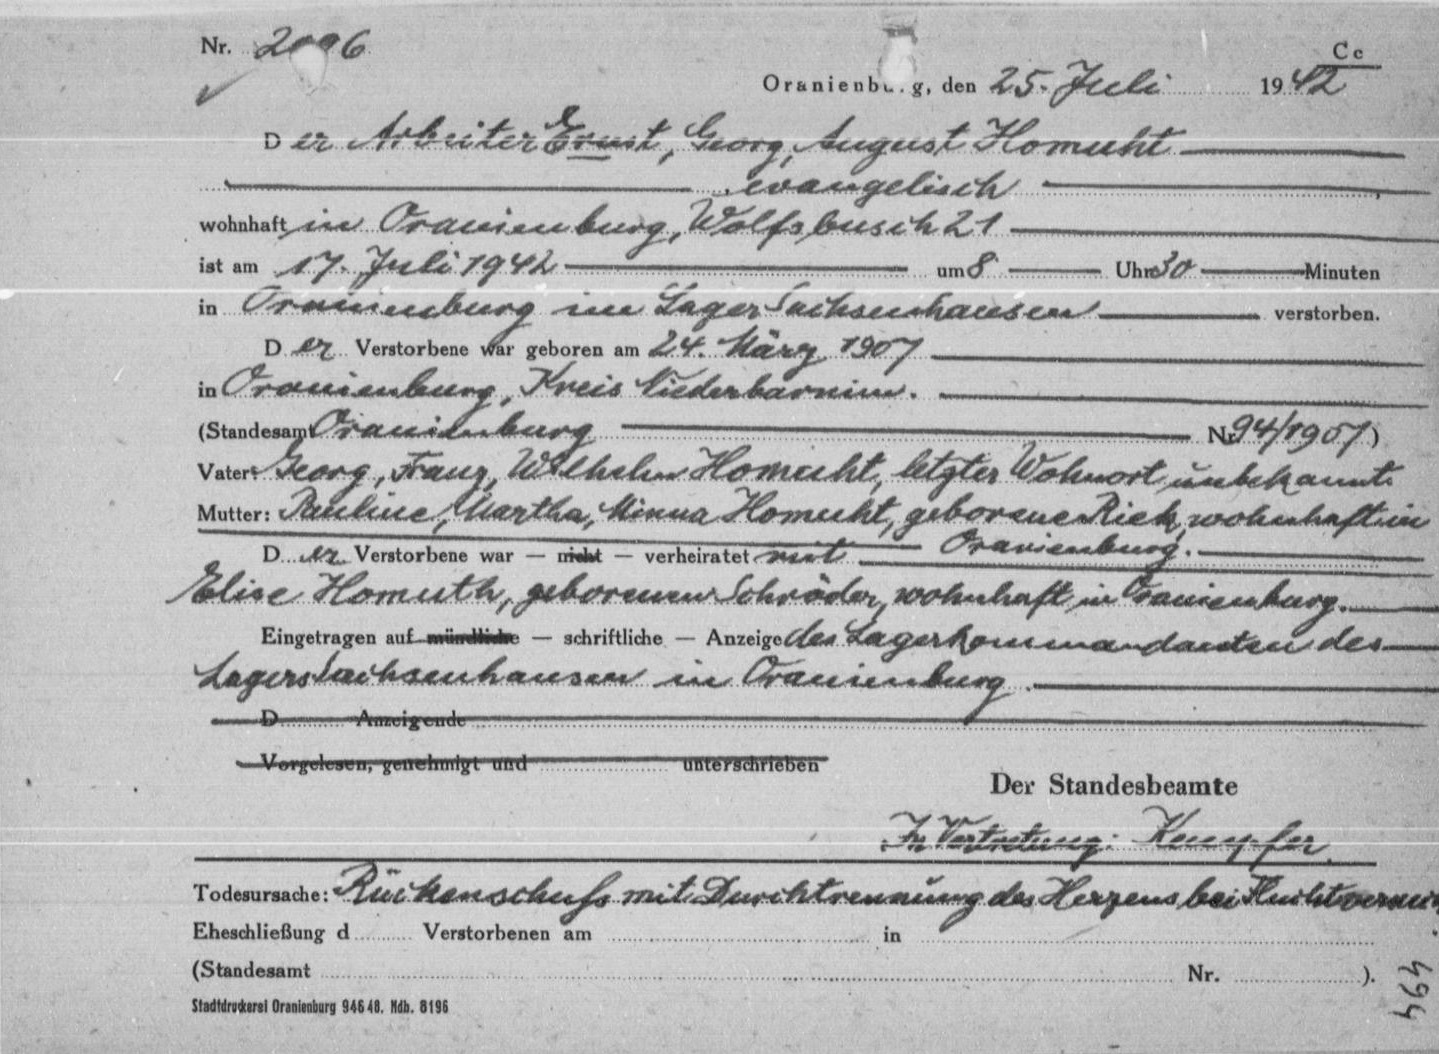 Nr. 2096
Cc
Oranienburg, den 25. Juli 1942
Der Arbeiter Ernst, Georg, August Homuht
evangelisch
wohnhaft in Oranienburg, Wolfsbusch 21
ist am 17. Juli 1942 um 8 Uhr 30 Minuten
in Oranienburg im Lager Sachsenhausen verstorben.
Der Verstorbene war geboren am 24. März 1907
in Oranienburg, Kreis Niederbarnim.
(Standesamt Oranienburg Nr. 94/1907)
Vater: Georg, Franz, Wilhelm Homuht, letzter Wohnort unbekannt.
Mutter: Pauline, Martha, Minna Homuht, geborene Rick, wohnhaft in
Oranienburg.
Der Verstorbene war — nicht — verheiratet mit
Elise Homuth, geborenen Schröder, wohnhaft in Oranienburg.
Eingetragen auf mündliche — schriftliche — Anzeige des Lagerkommandanten des
Lagers Sachsenhausen in Oranienburg.
D Anzeigende
Vorgelesen, genehmigt und unterschrieben
Der Standesbeamte
In Vertretung: Kempfer
Todesursache: Rückenschuß mit Durchtrennung des Herzens bei Fluchtversuch
Eheschließung d Verstorbenen am in
(Standesamt Nr. ).
494
Stadtdruckerei Oranienburg 946 48. Mdb. 8196